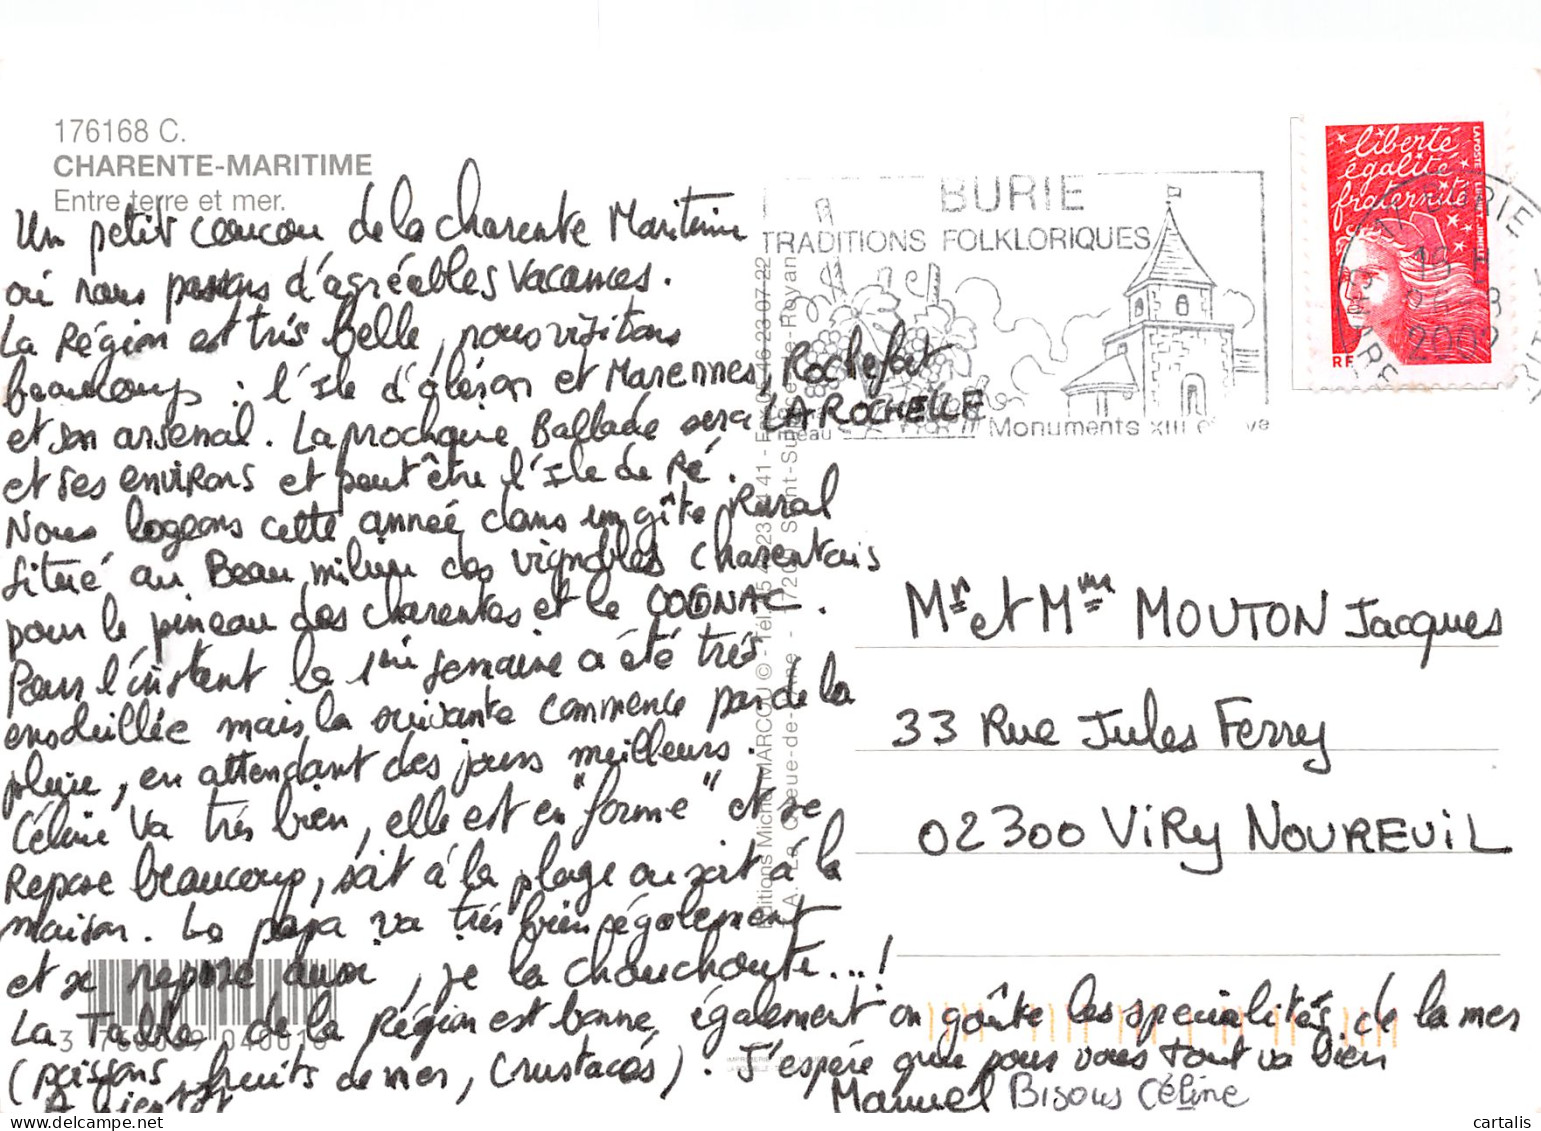 176168 C.
CHARENTE-MARITIME
Entre terre et mer.
Un petit coucou de la charente Maritime
où nous passons d'agréables vacances.
La Région est très belle, nous visitons
beaucoup : l'Isle d'oléron et Marennes, Rochefort
et son arsenal. La prochaine Ballade sera LA ROCHELLE
et ses environs et peut être l'Isle de Ré.
Nous logeons cette année dans un gîte Rural
situé au Beau milieu des vignobles charentais
pour le pineau des charentes et le COGNAC.
Pour l'instant la 1ère semaine a été très
ensoleillée mais la suivante commence par de la
pluie, en attendant des jours meilleurs.
Céline va très bien, elle est en "forme" et se
Repose beaucoup, soit à la plage ou soit à la
maison. Le papa va très bien également
et se repose aussi, je la chouchoute...!
La Table de la Région est bonne également on goûte les specialités de la mer
(poissons fruits de mer, crustacés). J'espère que pour vous tout va bien
A bientôt
Manuel Bisous Céline
BURIE
TRADITIONS FOLKLORIQUES
Monuments XIII
liberté
égalité
fraternité
LA POSTE
RF
BURIE
2002
CHARENTE
Mr et Mme MOUTON Jacques
33 Rue Jules Ferry
02300 VIRY NOUREUIL
Editions Michel MARCOU ©
3
cartalis.com